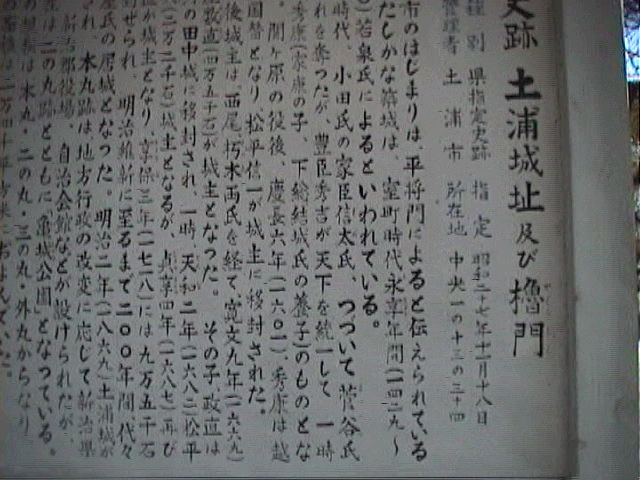 史跡 土浦城址及び櫓門
種別 県指定史跡 指定 昭和二十七年十一月十八日
管理者 土浦市 所在地 中央一の十三の三四
市のはじまりは、平将門によると伝えられている
たしかな築城は、室町時代永享年間(一四二九〜
)若泉氏によるといわれている。
時代、小田氏の家臣信太氏、つづいて菅谷氏
れを奪つたが、豊臣秀吉が天下を統一して一時
秀康(家康の子、下総結城氏の養子)のものとな
。関ヶ原の役後、慶長六年(一六〇一)、秀康は越
国替となり松平信一が城主に移封された。
後城主は、西尾、朽木両氏を経て寛文九年(一六六九)
屋政直(四万五千石)が城主となった。その子政直は
の田中城に移封され、一時、天和二年(一六八二)松平
(二万二千石)城主となるが、貞享四年(一六八七)再び
が城主となり、享保三年(一七一八)には九万五千石
封ぜられ、明治維新に至るまで二〇〇年間代々
屋氏の居城となった。明治二年(一八六九)土浦城が
され、本丸跡は地方行政の改変に応じて新治県
新治郡役場、自治会館などが設けられたが、
は二の丸跡とともに「亀城公園」となつている。
の規模は本丸・二の丸・三の丸・外丸からなり、